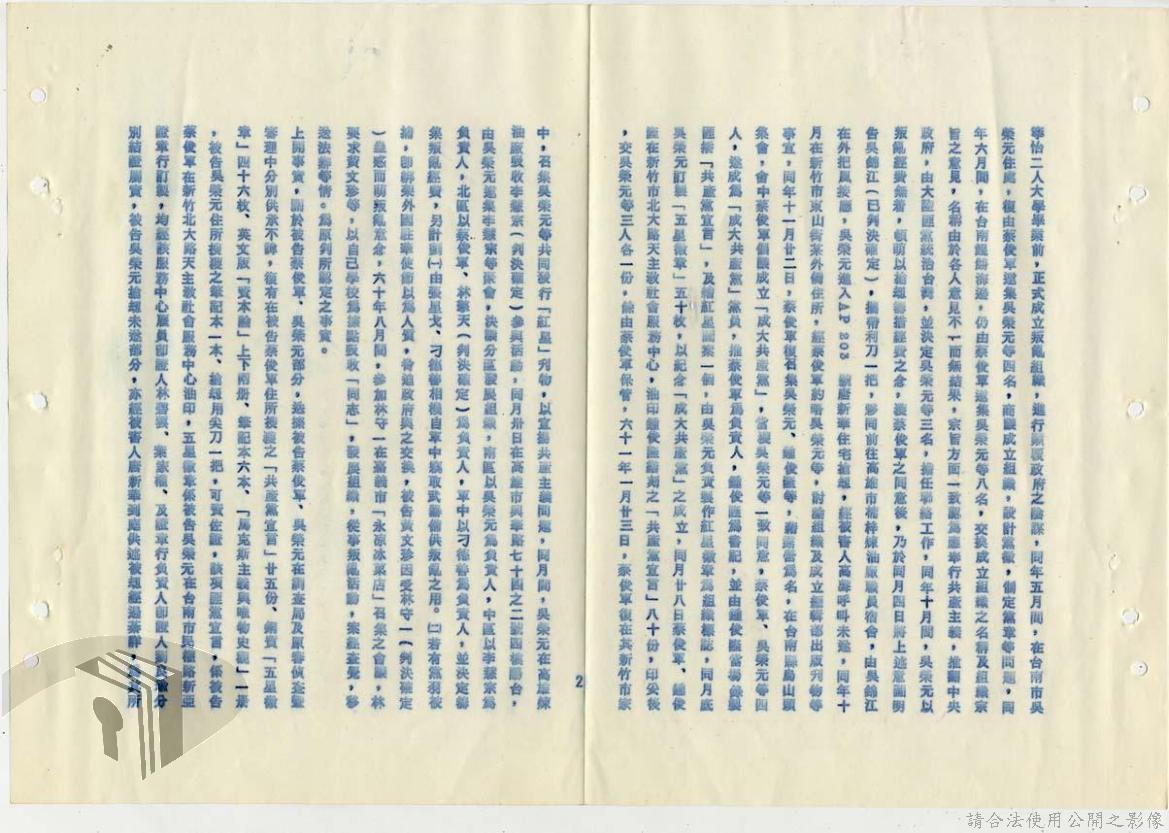 寧怡二人大學畢業前，正式成立叛亂組織，進行顛覆政府之陰謀，同年五月間，在台南市吳
榮元住處，復由蔡俊軍邀集吳榮元等四名，商議成立組織，設計黨徽，制定黨章等問題，同
年六月間，在台南鐵路旁邊，仍由蔡俊軍邀集吳榮元等八名，交換成立組織之名稱及組織宗
旨之意見，名稱由於各人意見不一而無結果，宗旨方面一致認為應奉行共產主義，推翻中央
政府，由大陸匪黨統治台灣，並決定吳榮元等三名，擔任聯絡工作，同年十月間，吳榮元以
叛亂經費無着，頓萌以搶劫籌措經費之念，獲蔡俊軍之同意後，乃於同月四日將上述意圖明
告吳錦江（已判決確定），攜帶利刀一把，夥同前往高雄市楠梓煉油廠職員宿舍，由吳錦江
在外把風接應，吳榮元進入AP 203 號唐新華住宅搶劫，經被害人高聲呼叫未遂，同年十
月在新竹市東山街某外僑住所，經蔡俊軍約晤吳榮元等，討論組織及成立編輯部出版刊物等
事宜，同年十一月廿二日，蔡俊軍復召集吳榮元、鍾俊隆等，藉露營為名，在台南縣烏山頭
集會，會中蔡俊軍倡議成立「成大共產黨」，當獲吳榮元等一致同意，蔡俊軍、吳榮元等四
人，遂成為「成大共產黨」黨員，推蔡俊軍為負責人，鍾俊隆為書記，並由鍾俊隆當場繪製
匪幫「共產黨宣言」，及繪紅星圖案一個，由吳榮元負責製作紅星徽章為組織標誌，同月底
吳榮元訂製「五星徽章」五十枚，以紀念「成大共產黨」之成立，同月廿八日蔡俊軍、鍾俊
隆在新竹市北大路天主教社會服務中心，油印鍾俊隆鐫刻之「共產黨宣言」八十份，印妥後
，交吳榮元等三人各一份，餘由蔡俊軍保管，六十一年一月廿三日，蔡俊軍復在其新竹市家
2
中，召集吳榮元等共同發行「紅星」刊物，以宣揚共產主義問題，同月間，吳榮元在高雄煉
油廠吸收李慧宗（判決確定）參與活動，同月卅日在高雄市興華路七十四之二號四樓陽台，
由吳榮元邀集李慧宗等集會，決議分區發展組織，南區以吳榮元為負責人，中區以李慧宗為
負責人，北區以蔡俊軍、林擎天（判決確定）為負責人，軍中以刁德善為負責人，並決定籌
集叛亂經費，另計議㈠由張星戈、刁德善相機自軍中竊取武器備供叛亂之用。㈡若有黨羽被
捕，即綁架外國駐華使節以為人質，脅迫政府與之交換，被告黃文珍因受林守一（判決確定
）蠱惑而萌叛亂意念，六十年八月間，參加林守一在嘉義市「永涼冰菓店」召集之會議，林
要求黃文珍等，以自己學校為據點吸收「同志」，發展組織，從事叛亂活動，案經查覺，移
送法辦等情。為原判所認定之事實。
上開事實，關於被告蔡俊軍、吳榮元部分，迭據被告蔡俊軍、吳榮元在調查局及原審偵查暨
審理中分別供承不諱，復有在被告蔡俊軍住所搜獲之「共產黨宣言」廿五份、銅質「五星徽
章」四十六枚、英文版「資本論」上下兩册、筆記本六本、「馬克斯主義與唯物史觀」一册
，被告吳榮元住所搜獲之筆記本一本、搶劫用尖刀一把，可資佐證，該項匪黨宣言，係被告
蔡俊軍在新竹北大路天主教社會服務中心油印，五星徽章係被告吳榮元在台南市民權路新亞
證章行訂製，均經該服務中心職員即證人林
別結證屬實，被告吳榮元搶劫未遂部分，亦經被害人唐新華到庭供述被劫經過綦詳，
請合法使用公開之影像